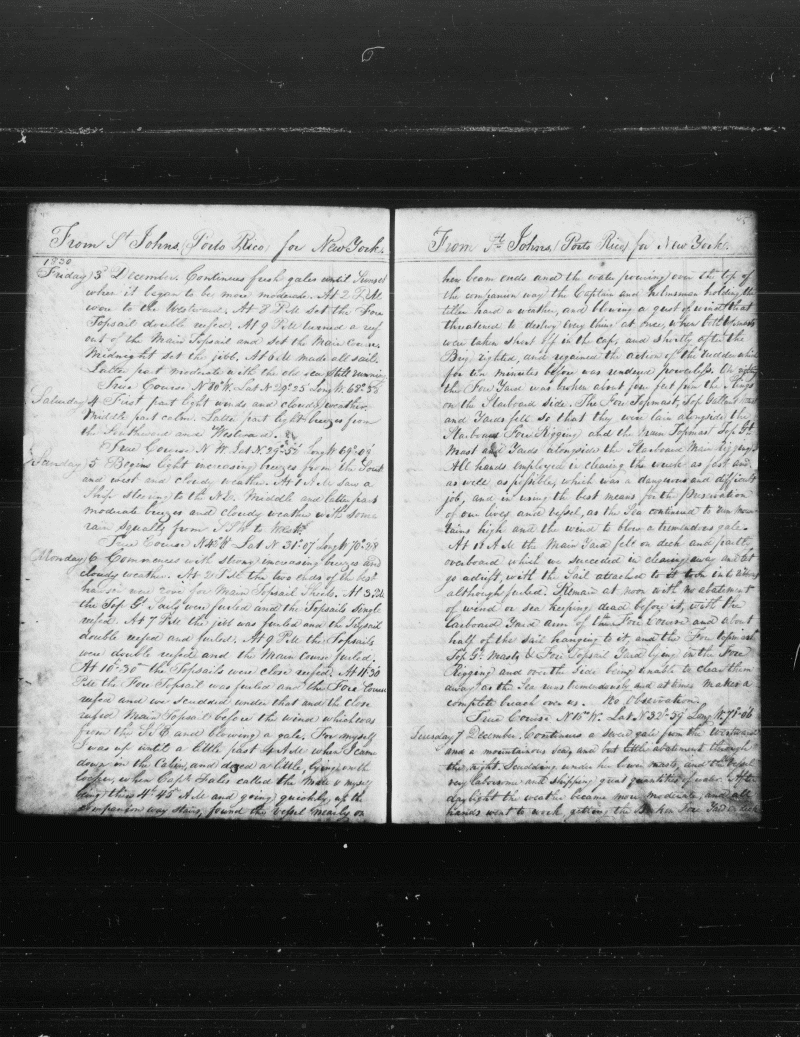 From St Johns, (Porto Rico) for New York.
1830
Friday 3d December. Continues fresh gales until Sunset
when it began to be more moderate. At 2 P.M
wore to the Westward. At 8 P.M set the Fore
Topsail double reefed. At 9 P.M turned a reef
out of the Main Topsail and set the Main Course
Midnight set the jibb. At 6 A.M made all sail.
Latter part moderate with the old sea still running
True Course N 16° W. Lat N 29°.25 Long W. 68°.56
Saturday 4 First part light winds and cloudy weather.
Middle part calm. Latter part light breezes from
the Northward and Westward.
True Course N W. Lat N. 29°.58 Long W 69°.09
Sunday 5 Begins light increasing breezes from the South
and west and cloudy weather. At 7 A.M saw a
Ship steering to the N.E. Middle and latter part
moderate breezes and cloudy weather with some
rain squalls from S S W to West.
True Course N 46° W Lat N 31°.07 Long W 70°.28
Monday 6 Commences with strong increasing breezes and
cloudy weather. At 2 P.M the two ends of the best
hawser were rove for Main Topsail Sheets. At 3.20
the Top Gt Sails were furled and the Topsails single
reefed. At 7 P.M the jib was furled and the Trysail
double reefed and furled. At 9 P.M the Topsails
were double reefed and the Main Course furled.
At 10.30 the Topsails were close reefed. At 11.30
P.M the Fore Topsail was furled and the Fore Course
reefed and we scudded under that and the close
reefed Main Topsail before the wind which was
from the S. E and blowing a gale. For myself
I was up until a little past 4 A.M when I came
down in the Cabin, and dozed a little, lying on the
locker, when Capt. Fales called the Mate & myself
being then 4h 45 A.M and going quickly up the
companion way stairs, found the vessel nearly on
From St Johns, (Porto Rico) for New York.
her beam ends and the water pouring over the top of
the companion way the Captain and helmsman holding the
tiller hard a weather, and blowing a gust of wind that
threatened to destroy every thing at once, when both
were taken short off in the caps, and shortly after the
Brig righted, and regained the action of the rudder which
for ten minutes before was rendered powerless. On righting
the Fore Yard was broken about four feet from the slings
on the Starboard side. The Fore Topmast, Top Gallant mast
and Yards fell so that they were lain alongside the
Starboard Fore Rigging and the Main Topmast Top Gt
Mast and Yards alongside the Starboard Main Rigging.
All hands employed in clearing the wreck as fast and
as well as possible, which was a dangerous and difficult
job, and in using the best means for the preservation
of our lives and vessel, as the Sea continued to run moun-
tains high and the wind to blow a tremendous gale.
At 11 A.M the Main Yard fell on deck and partly
overboard which we succeeded in clearing away and let
go adrift, with the Sail attached to it
although furled. Remain at noon with no abatement
of wind or sea keeping dead before it, with the
larboard Yard arm of the Fore Course and about
half of the sail hanging to it, and the Fore topmast
Top Gt Masts & Fore Topsail Yard lying in the Fore
Rigging and over the side being unable to clear them
away as the Sea was tremendously and at times makes a
complete breach over us. No Observation.
True Course N 15° W. Lat N 32°.39 Long W. 71°.06
Tuesday 7 December. Continues a severe gale from the Westward
and a mountainous sea, and but little abatement through
the night. Scudding under her lower masts, and the vessel
very laborsome and shipping great quantities of water. After
daylight the weather became more moderate, and all
hands went to work, getting the Broken Fore Yard on deck